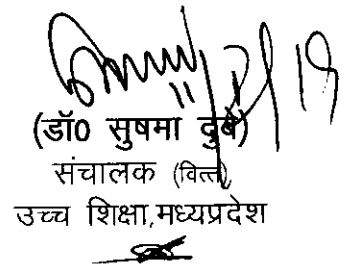 (डॉ0 सुषमा दुबे)
संचालक (वित्त),
उच्च शिक्षा,मध्यप्रदेश